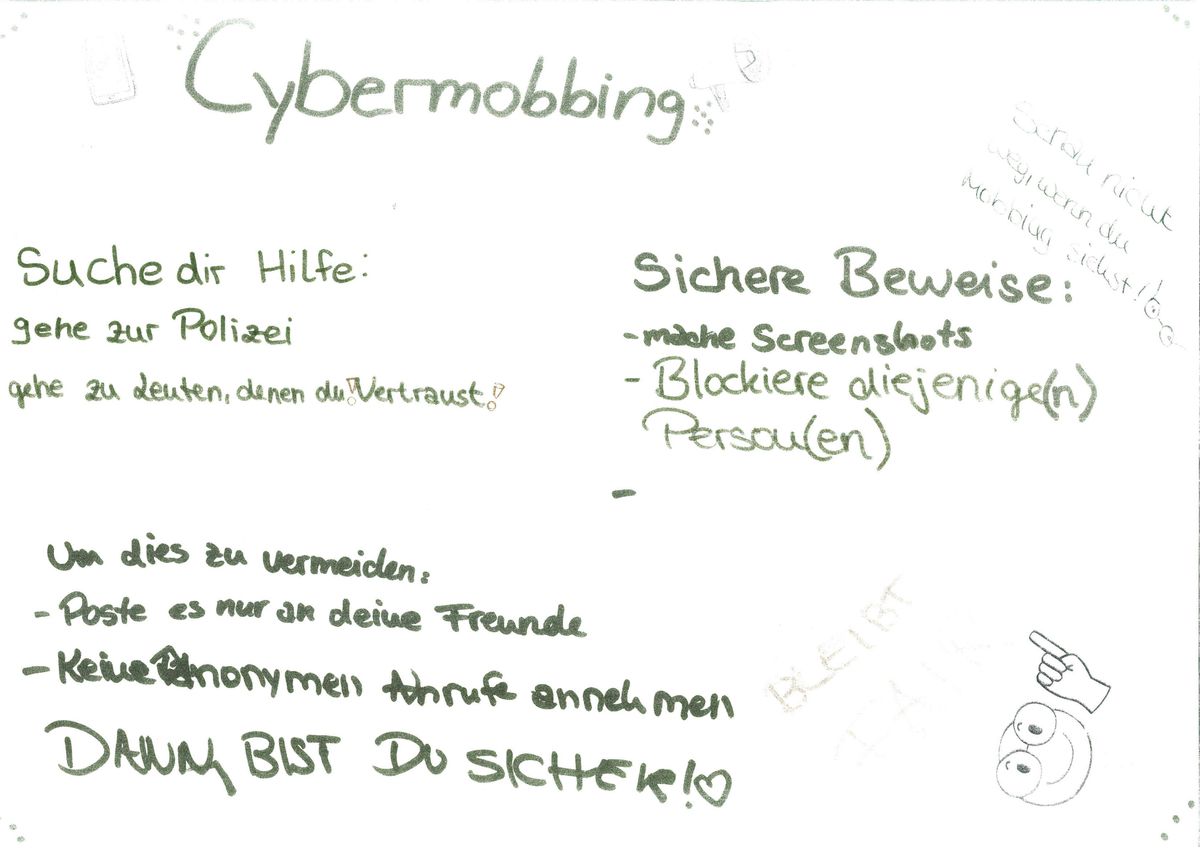 Cybermobbing
Schau nicht
weg, wenn du
Mobbing siehst!
Suche dir Hilfe:
gehe zur Polizei
gehe zu Leuten, denen du! Vertraust!
Sichere Beweise:
- mache Screenshots
- Blockiere diejenige(n)
Person(en)
-
Um dies zu vermeiden:
- Poste es nur an deine Freunde
- Keine Anonymen Anrufe annehmen
DANN BIST DU SICHER!♡
BLEIBT